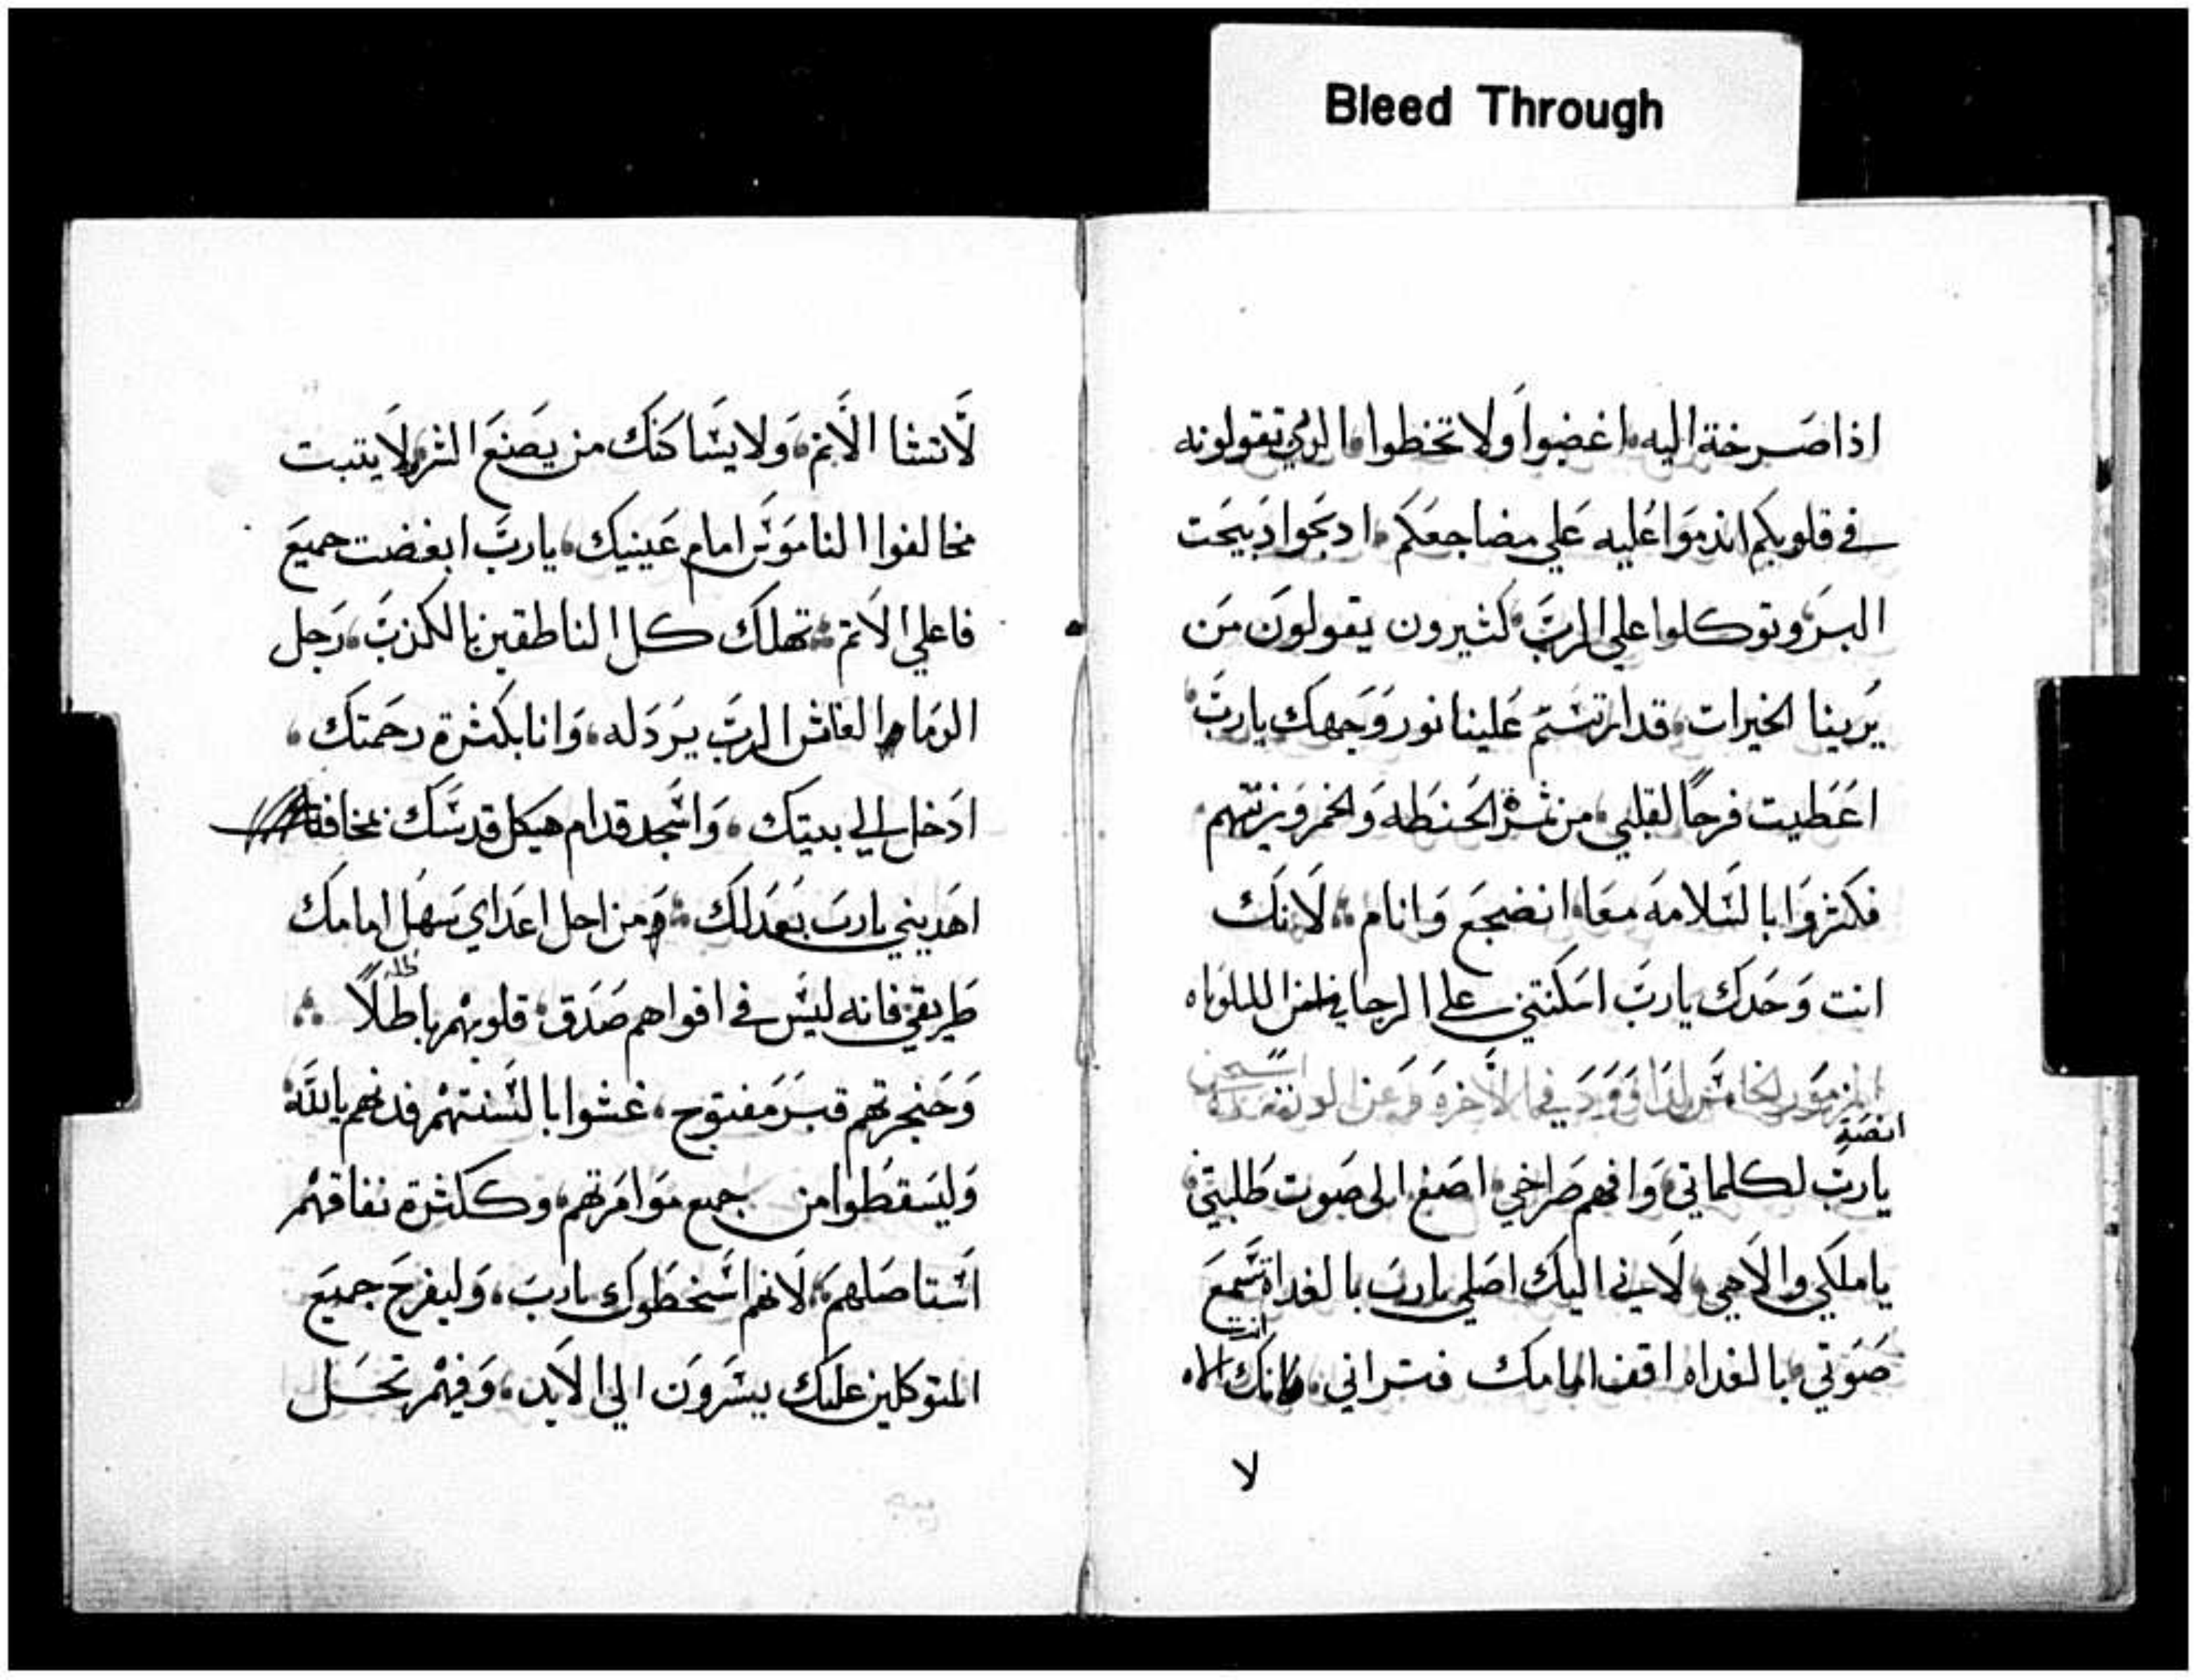 Bleed Through
اذا صرخة اليه اغضبوا ولا تخطوا الدي تقولونه
في قلوبكم اندموا عليه علي مضاجعكم ادبحوا دبيحت
البر وتوكلوا علي الرب كثيرون يقولون من
يرينا الخيرات قد ارتسم علينا نور وجهك يارب
اعطيت فرحًا لقلبي من ثمرة الحنطه والخمر وزيتهم
فكثروا بالسلامه معا انضجع وانام لانك
انت وحدك يارب اسكنتني علي الرجا
المزمور الخامس لداوود في الاخرة
انصة
يارب لكلماتي وافهم صراخي اصغ الى صوت طلبتي
ياملكي والاهي لاني اليك اصلي يارب بالغداة تسمع
انت
صوتي بالغداه اقف امامك فتراني لانك الاه
لا
لا تشا الاثم ولا يساكنك من يصنع الشر ولا يتبت
مخالفوا الناموس امام عينيك يارب ابغضت جميع
فاعلي الاتم تهلك كل الناطقين بالكذب رجل
الدما والغاش الرب يردله وانا بكثرة رحمتك
ادخل الي بيتك واسجد قدام هيكل قدسك بمخافتك
اهديني يارب بعدلك ومن اجل اعداي سهل امامك
طريقي فانه ليس في افواههم صدق قلوبهم باطلًا
وحنجرتهم قبر مفتوح غشوا بالسنتهم فدنهم ياالله
وليسقطوا من جميع موامرتهم وكلثرة نفاقهم
استاصلهم لانهم اسخطوك يارب وليفرح جميع
المتوكلين عليك يسرون الي الابد وفيهم تحل